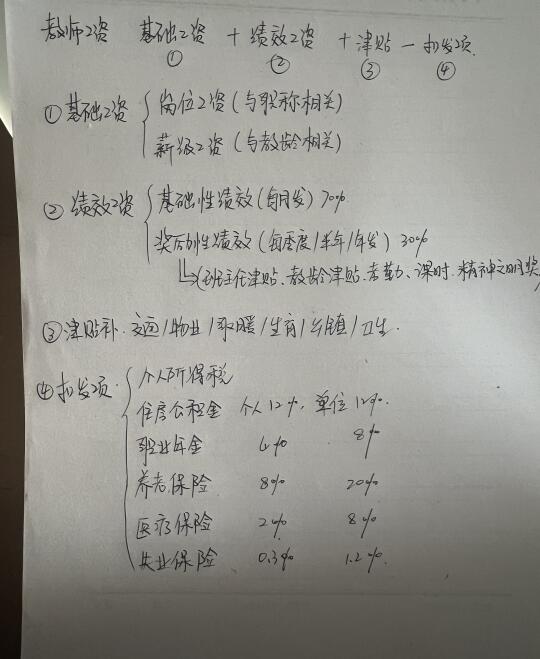 教师工资 基础工资 + 绩效工资 + 津贴 - 扣发项.
① ② ③ ④
①基础工资 { 岗位工资(与职称相关)
薪级工资(与教龄相关)
② 绩效工资 { 基础性绩效(每月发) 70%
奖励性绩效(每季度/半年/年发) 30%
↳(班主任津贴、教龄津贴、考勤、课时.精神文明奖)
③津贴补. 交通/物业/取暖/生育/乡镇/卫生.
④扣发项. { 个人所得税
住房公积金 个人12%, 单位12%.
职业年金 4% 8%
养老保险 8% 20%
医疗保险 2% 8%
失业保险 0.3% 1.2%.